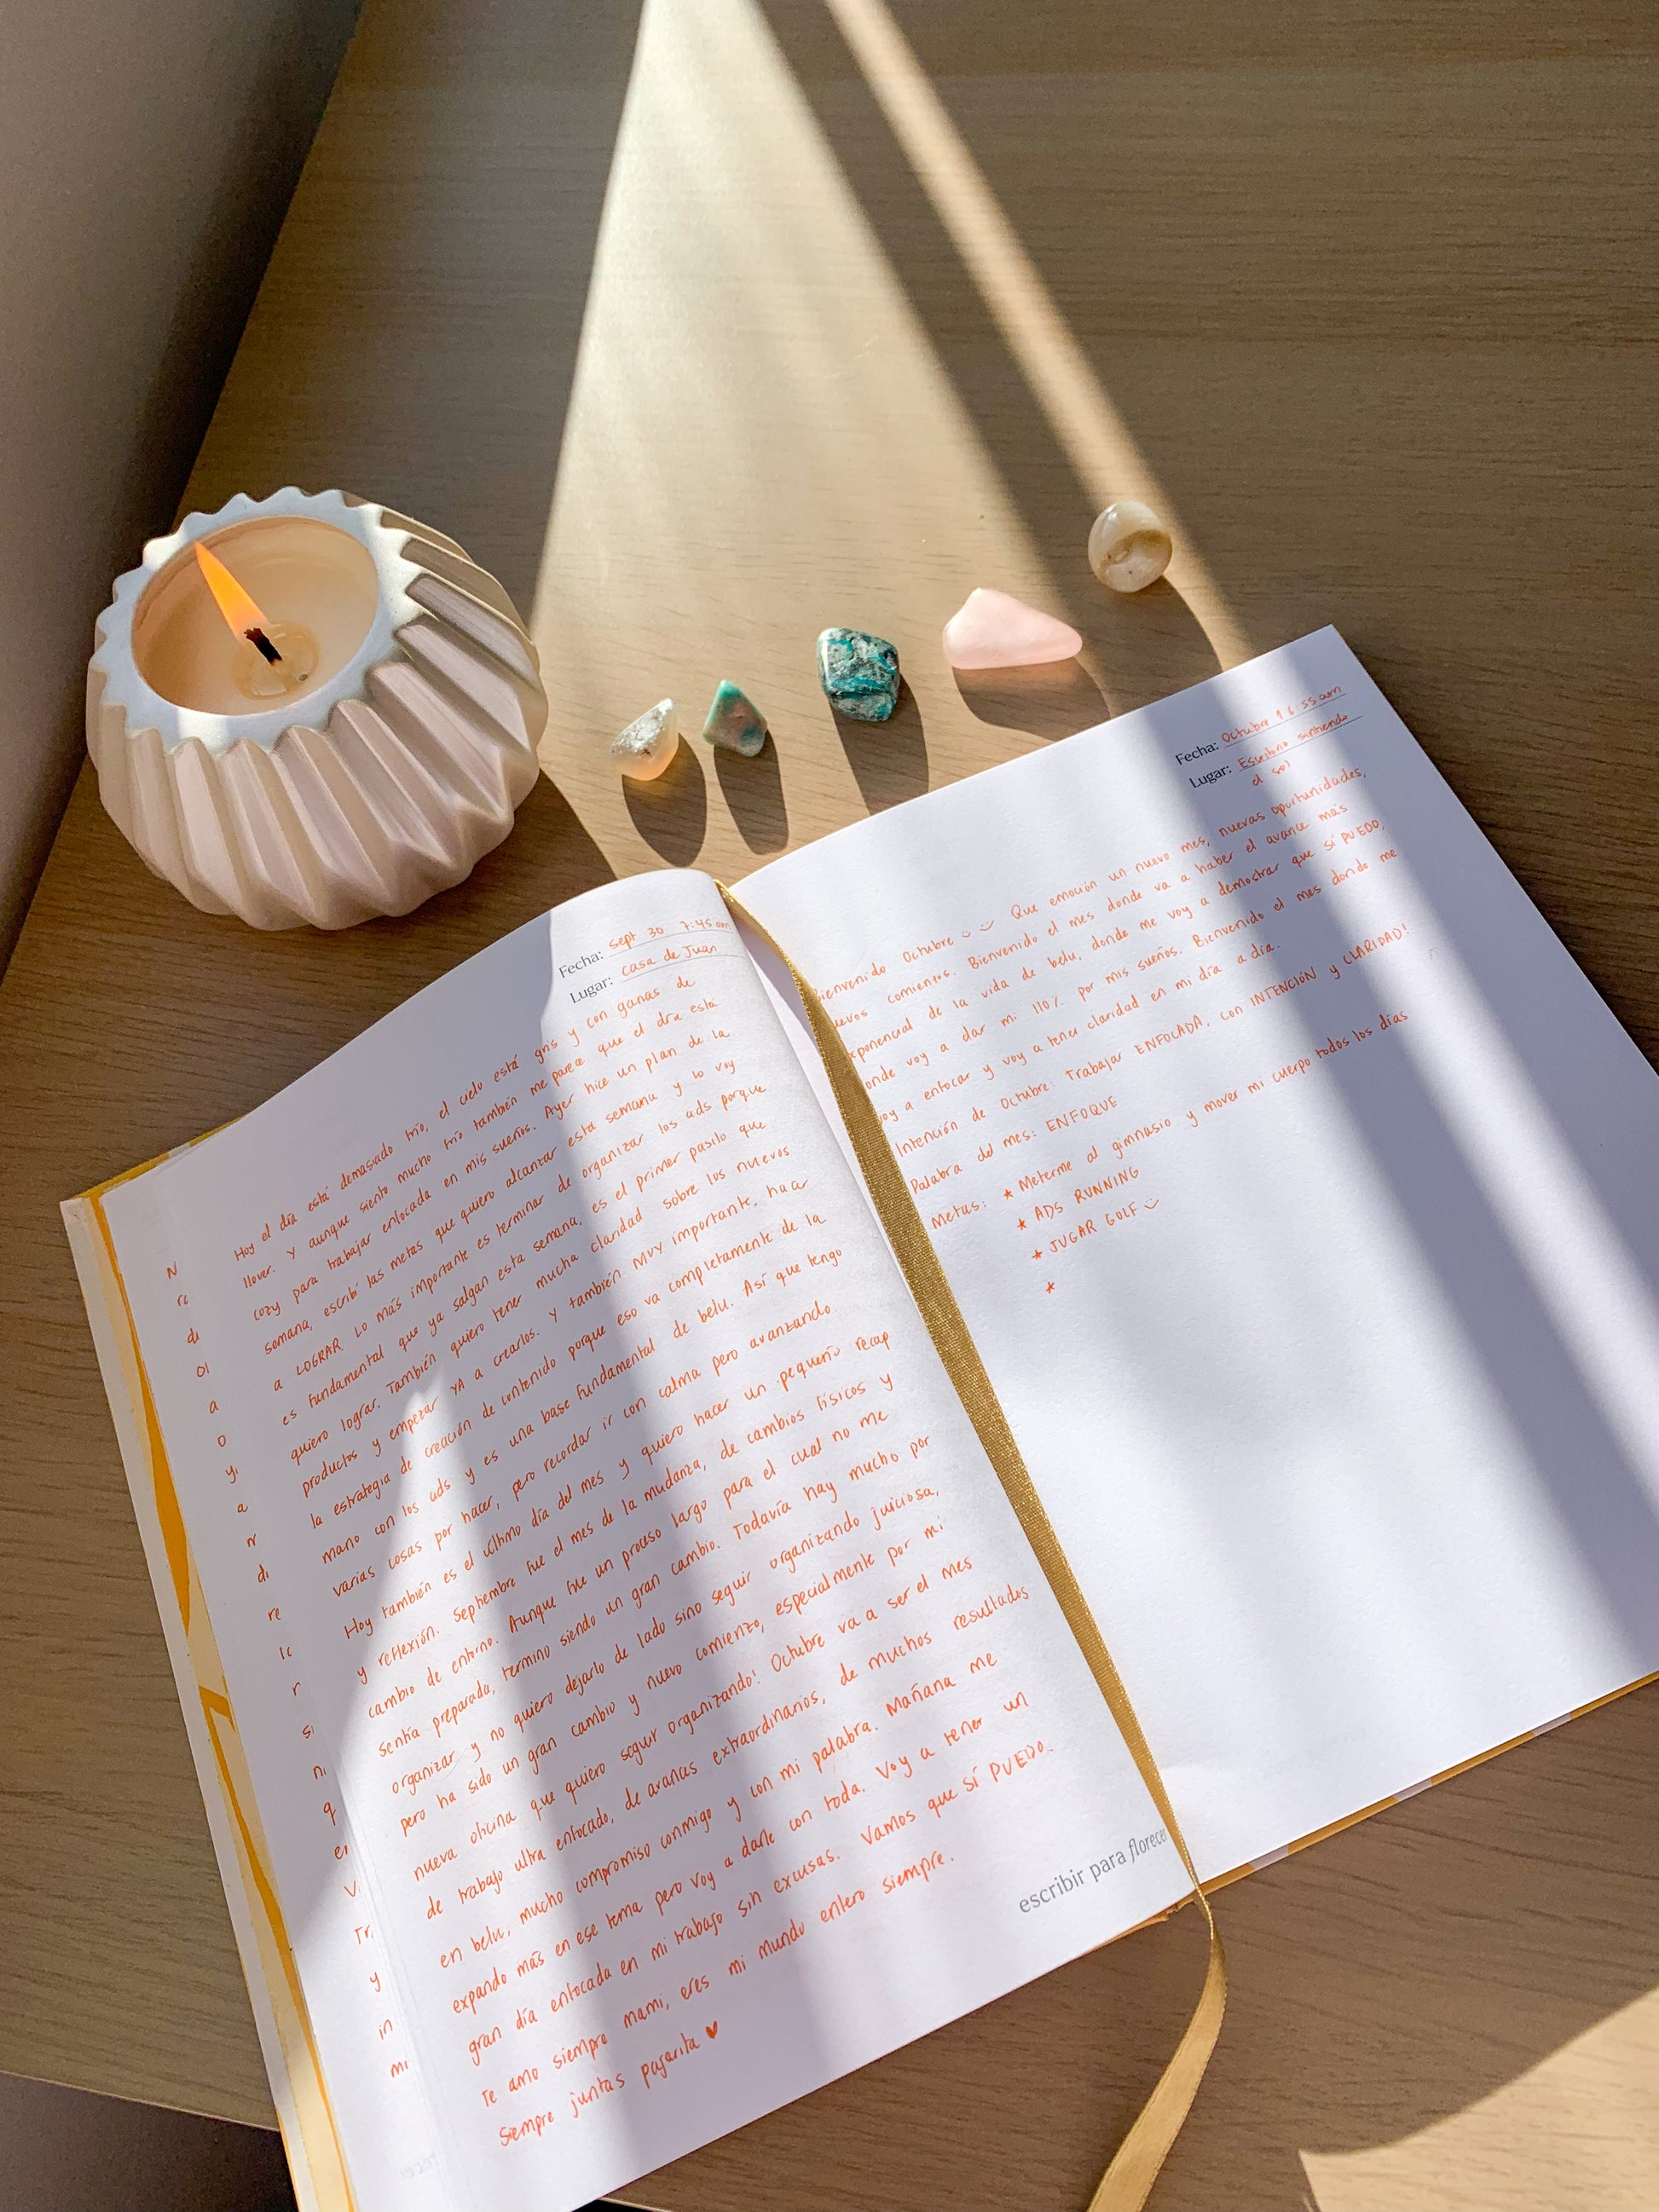 Fecha: Sept 30 7:45 am
Lugar: casa de Juan
Hoy el día está demasiado frío, el cielo está gris y con ganas de
llover. Y aunque siento mucho frío también me parece que el día está
cozy para trabajar enfocada en mis sueños. Ayer hice un plan de la
semana, escribí las metas que quiero alcanzar esta semana y lo voy
a LOGRAR. Lo más importante es terminar de organizar los ads porque
es fundamental que ya salgan esta semana, es el primer pasito que
quiero lograr. También quiero tener mucha claridad sobre los nuevos
productos y empezar YA a crearlos. Y también MUY importante, hacer
la estrategia de creación de contenido porque eso va completamente de la
mano con los ads y es una base fundamental de belu. Así que tengo
varias cosas por hacer, pero recordar ir con calma pero avanzando.
Hoy también es el último día del mes y quiero hacer un pequeño recap
y reflexión. Septiembre fue el mes de la mudanza, de cambios físicos y
cambio de entorno. Aunque fue un proceso largo para el cual no me
sentía preparada, termino siendo un gran cambio. Todavía hay mucho por
organizar y no quiero dejarlo de lado sino seguir organizando juiciosa,
pero ha sido un gran cambio y nuevo comienzo, especialmente por mi
nueva oficina que quiero seguir organizando! Octubre va a ser el mes
de trabajo ultra enfocado, de avances extraordinarios, de muchos resultados
en belu, mucho compromiso conmigo y con mi palabra. Mañana me
expando más en ese tema pero voy a darle con toda. Voy a tener un
gran día enfocada en mi trabajo sin excusas. Vamos que sí PUEDO.
Te amo siempre mami, eres mi mundo entero siempre.
Siempre juntas pajarita ♥
escribir para florecer
Fecha: Octubre 1 6:55 am
Lugar: Escritorio sintiendo
el sol
Bienvenido Octubre Que emoción un nuevo mes, nuevas oportunidades,
nuevos comienzos. Bienvenido el mes donde va a haber el avance más
exponencial de la vida de belu, donde me voy a demostrar que sí PUEDO,
donde voy a dar mi 110% por mis sueños. Bienvenido el mes donde me
voy a enfocar y voy a tener claridad en mi día a día.
Intención de Octubre: Trabajar ENFOCADA, con INTENCIÓN y CLARIDAD!
Palabra del mes: ENFOQUE
Metas: ★ Meterme al gimnasio y mover mi cuerpo todos los días
★ ADS RUNNING
★ JUGAR GOLF
★